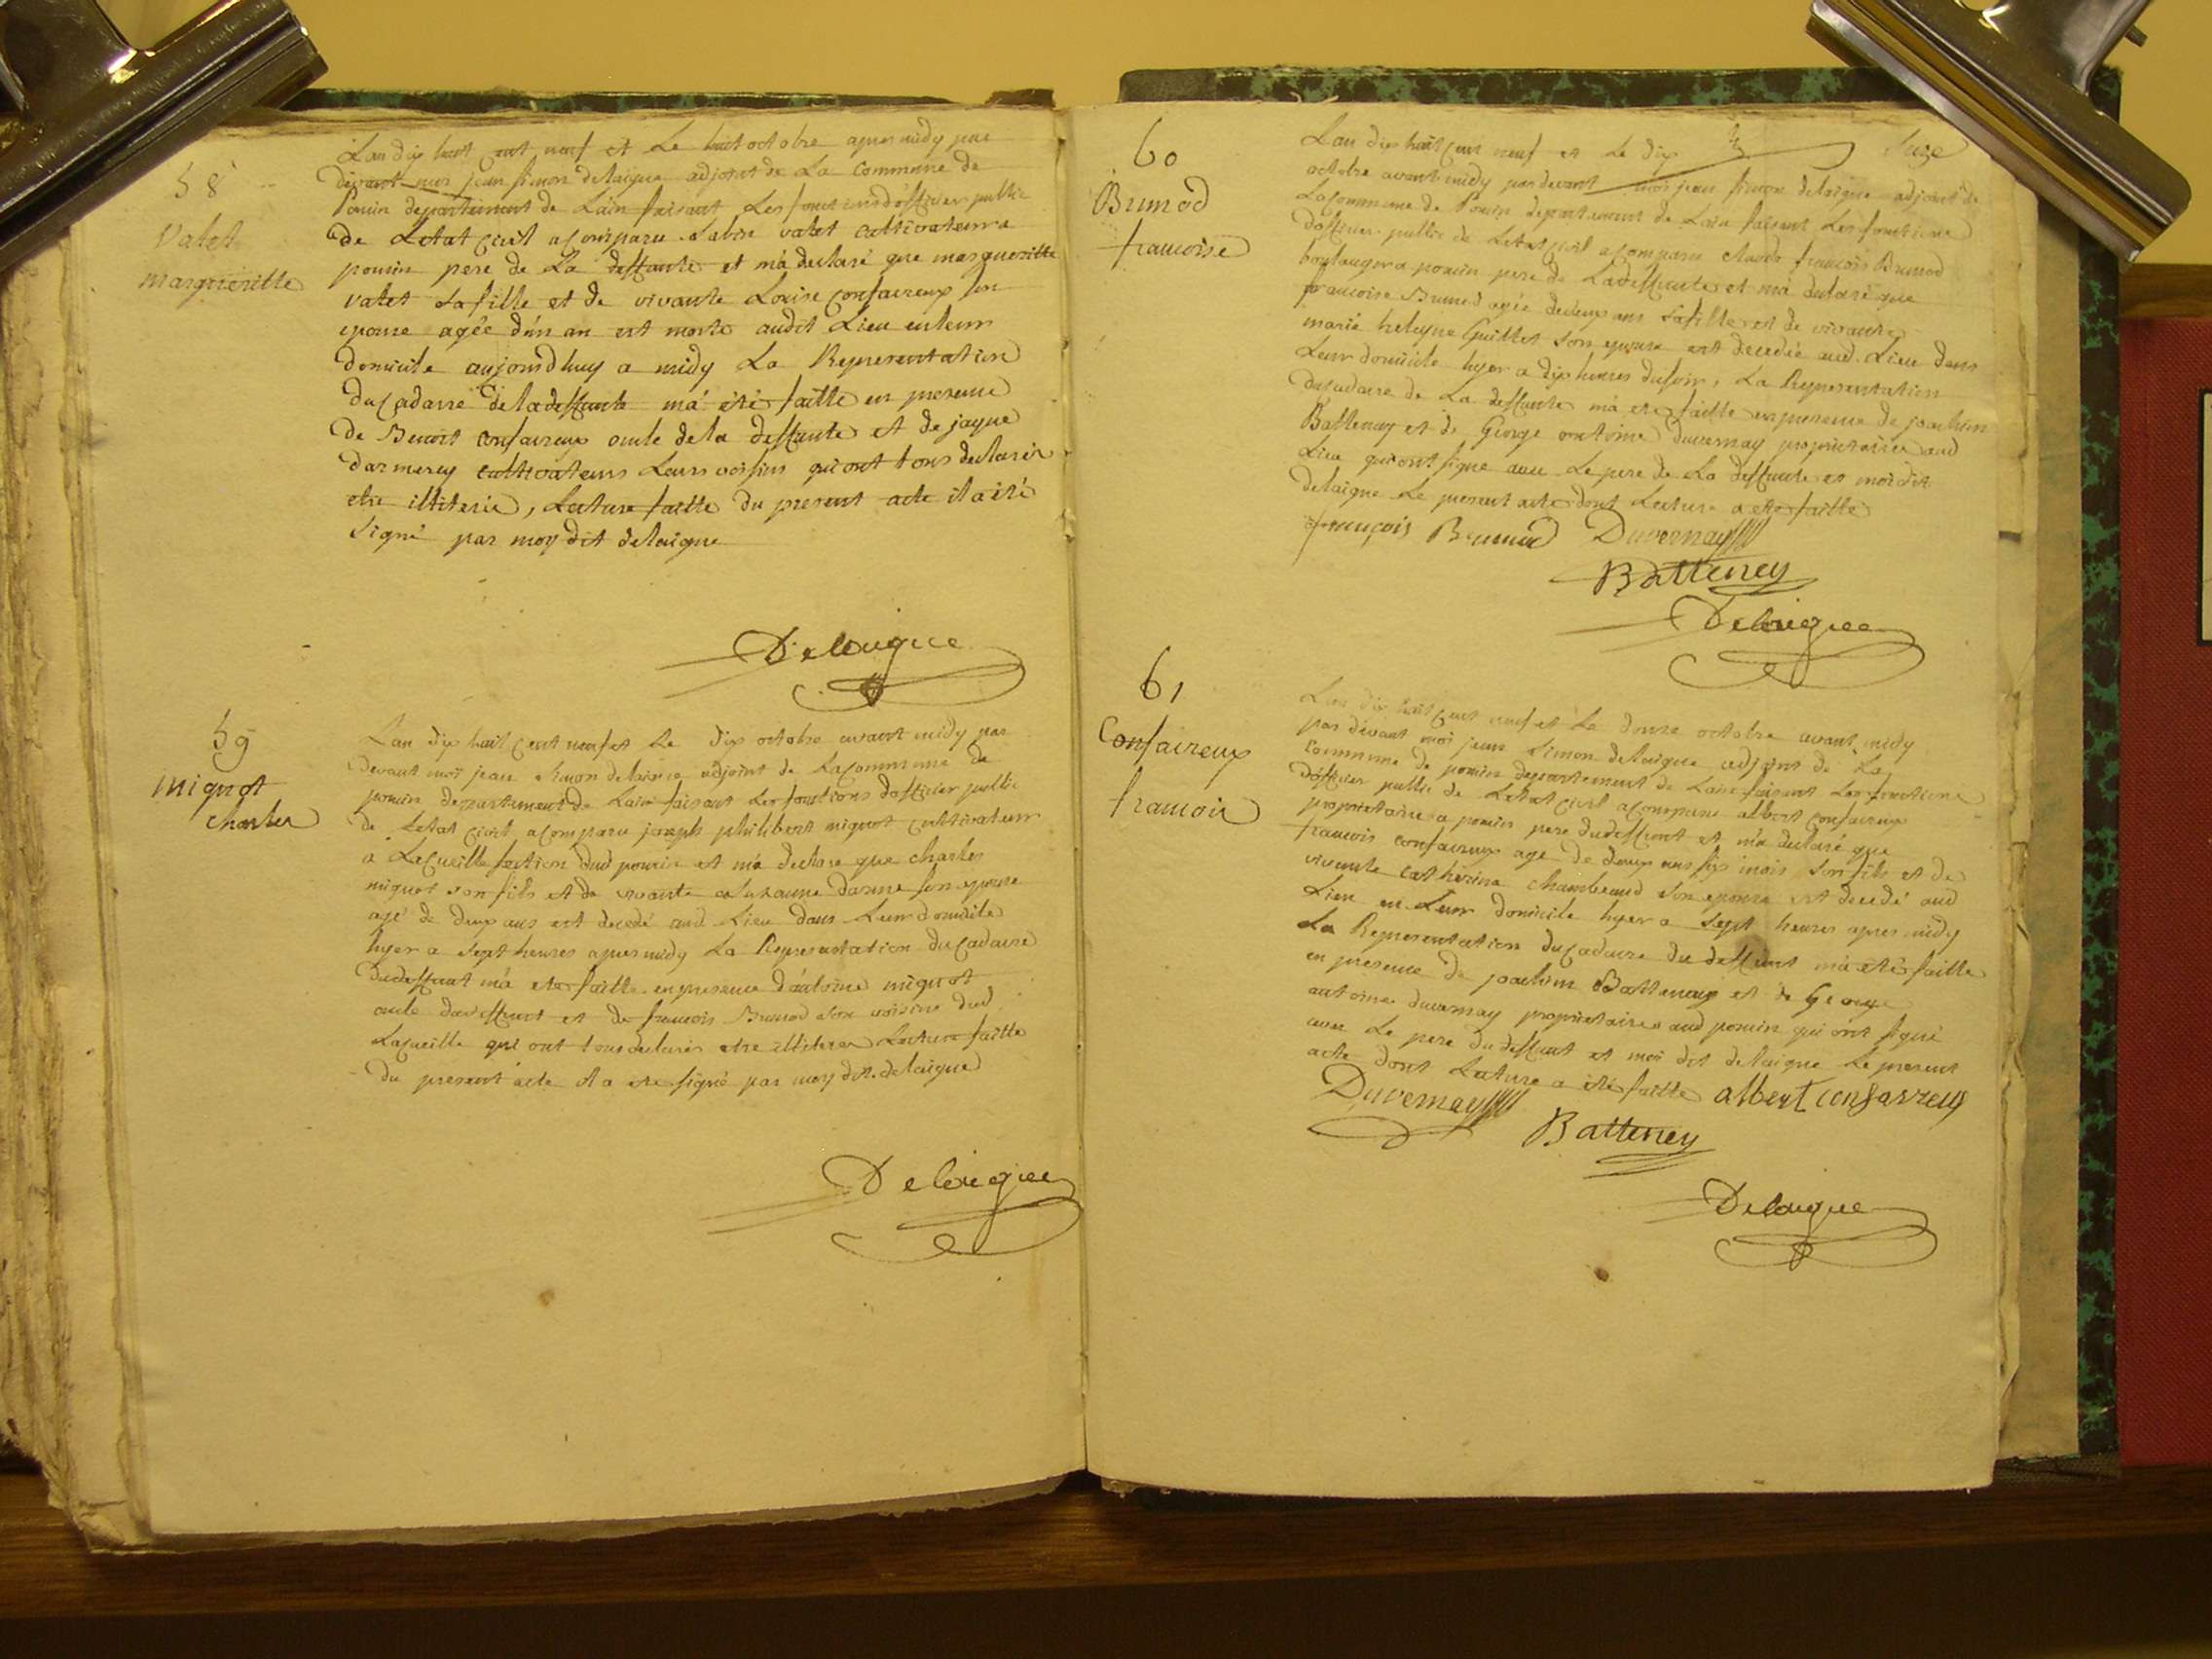 58
Valet
margueritte
Lan dix huit cent neuf et Le huit octobre apres midy par
devant moi jean simon delaigue adjoint de La Commune de
Poncin departement de Lain faisant Les fonctions dofficier public
de Letat civil a comparu Sabin valet cultivateur a
poncin pere de La deffunte et m'a declaré que margueritte
valet sa fille et de vivante Louise confavreux son
epouse agée d'un an est morte audit Lieu en leur
domicile aujourdhuy a midy La Representation
du Cadavre de la deffunte m'a été faitte en presence
de Benoit confavreux oncle de la deffunte et de jaque
darmency cultivateurs Leurs voisins qui ont tous declarés
etre illiterés, Lecture faitte du present acte il a été
signé par moy dit delaigue
Delaigue
59
mignot
charles
Lan dix huit cent neuf et Le dix octobre avant midy par
devant moi jean simon delaigue adjoint de La commune de
poncin departement de Lain faisant Les fonctions dofficier public
de Letat civil a comparu joseph philibert mignot cultivateur
a La cueille section dud poncin et m'a declare que charles
mignot son fils et de vivante Suzanne darme son epouse
agé de deux ans est decedé aud Lieu dans Leur domicile
hyer a sept heures apres midy La Representation du Cadavre
du deffunt m'a ete faitte en presence d'antoine mignot
oncle du deffunt et de francois Brunod son voisin dud
La cueille qui ont tous declarés etre illiteres Lecture faitte
du present acte il a ete signé par moy dit delaigue
Delaigue
60
Brunod
francoise
Seize
Lan dix huit cent neuf et Le dix
octobre avant midy par devant moi jean simon delaigue adjoint de
La commune de Poncin departement de Lain faisant Les fonctions
dofficier public de Letat civil a comparu claude francois Brunod
boulanger a poncin pere de La deffunte et m'a declaré que
francoise Brunod agée de deux ans sa fille et de vivante
marie heleyne Guillet son epouse est decedée aud. Lieu dans
Leur domicile hyer a dix heures du soir, La Representation
du cadavre de La deffunte m'a ete faitte en presence de joachim
Battenay et de George antoine duvernay proprietaires aud
Lieu qui ont signe avec Le pere de La deffunte et moi dit
delaigue Le present acte dont Lecture a ete faitte
françois Brunod Duvernay
Batteney
Delaigue
61
Confavreux
francois
Lan dix huit cent neuf et Le douze octobre avant midy
par devant moi jean Simon delaigue adjoint de La
Commune de poncin departement de Lain faisant Les fonctions
dofficier public de Letat civil a comparu albert confavreux
proprietaire a poncin pere du deffunt et m'a declaré que
francois confavreux age de deux ans six mois son fils et de
vivante catherine chambeaud son epouse est decedé aud
Lieu en Leur domicile hyer a sept heures apres midy
La Representation du Cadavre du deffunt m'a eté faitte
en presence de joachim Battenay et de George
antoine duvernay proprietaires aud poncin qui ont signé
avec Le pere du deffunt et moi dit delaigue Le present
acte dont Lecture a été faitte albert confavreux
Duvernay
Batteney
Delaigue